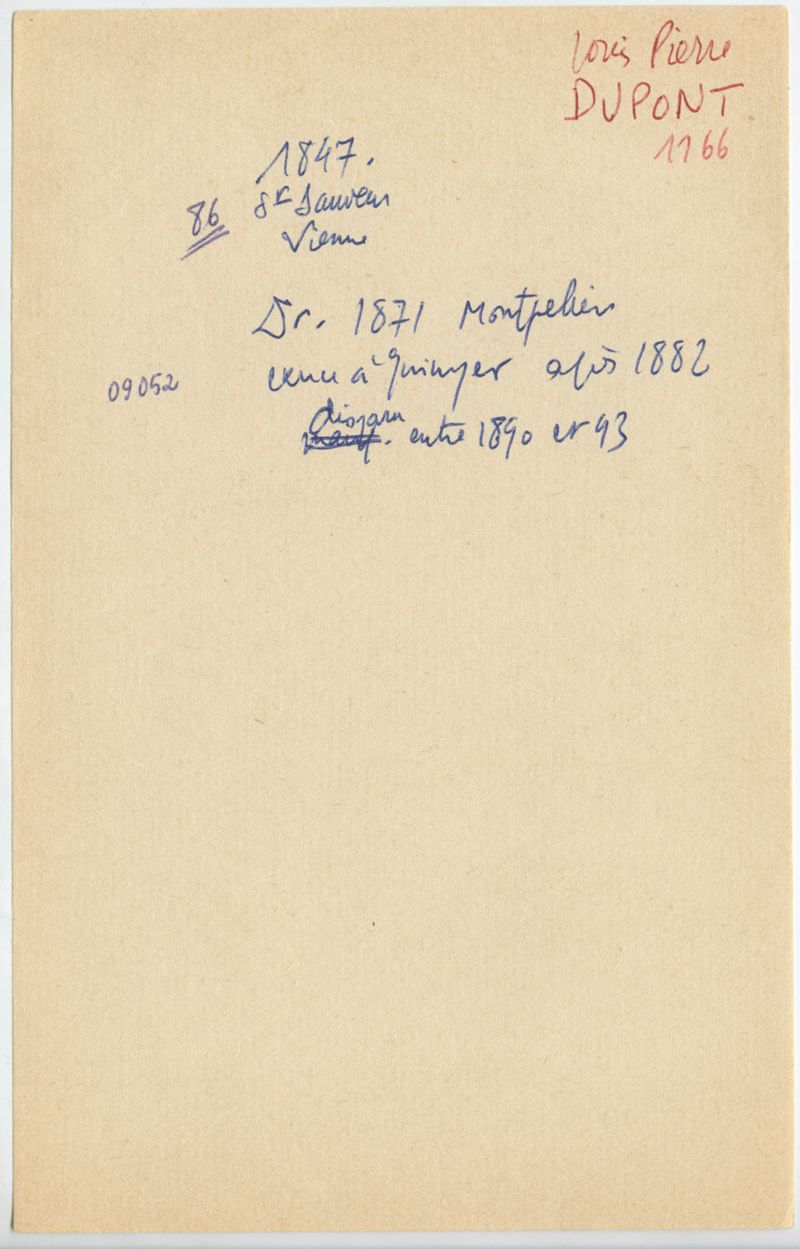 Louis Pierre
DUPONT
1166
1847.
86 St Sauveur
Vienne
Dr. 1871 Montpellier
venu à Quimper après 1882
09052
disparu
entre 1890 et 93